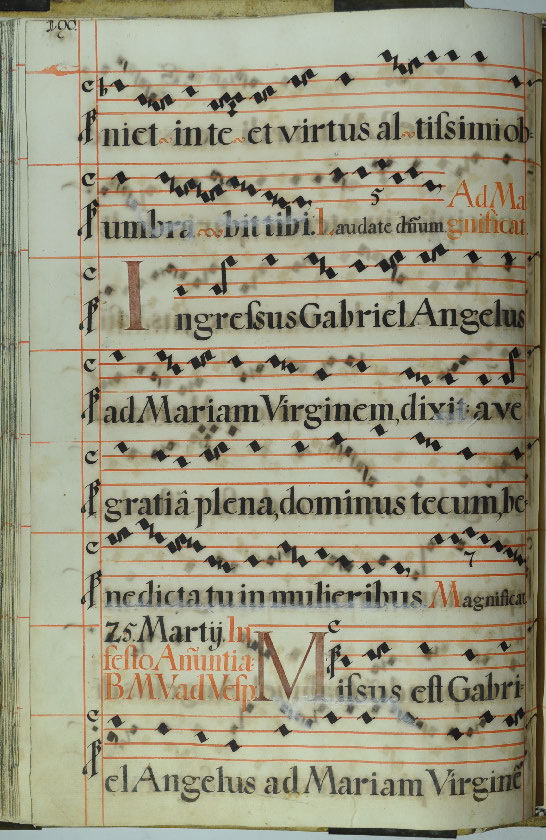 190.
niet in te et virtus altissimi ob-
umbrabit tibi. Laudate dñum 5 Ad Ma
gnificat.
Ingressus Gabriel Angelus
ad Mariam Virginem, dixit: ave
gratiâ plena, dominus tecum, be-
nedicta tu in mulieribus. Magnificat 7
25. Martij. In
festo Añuntia-
B.M.V. ad Vesp.
Missus est Gabri-
el Angelus ad Mariam Virginẽ